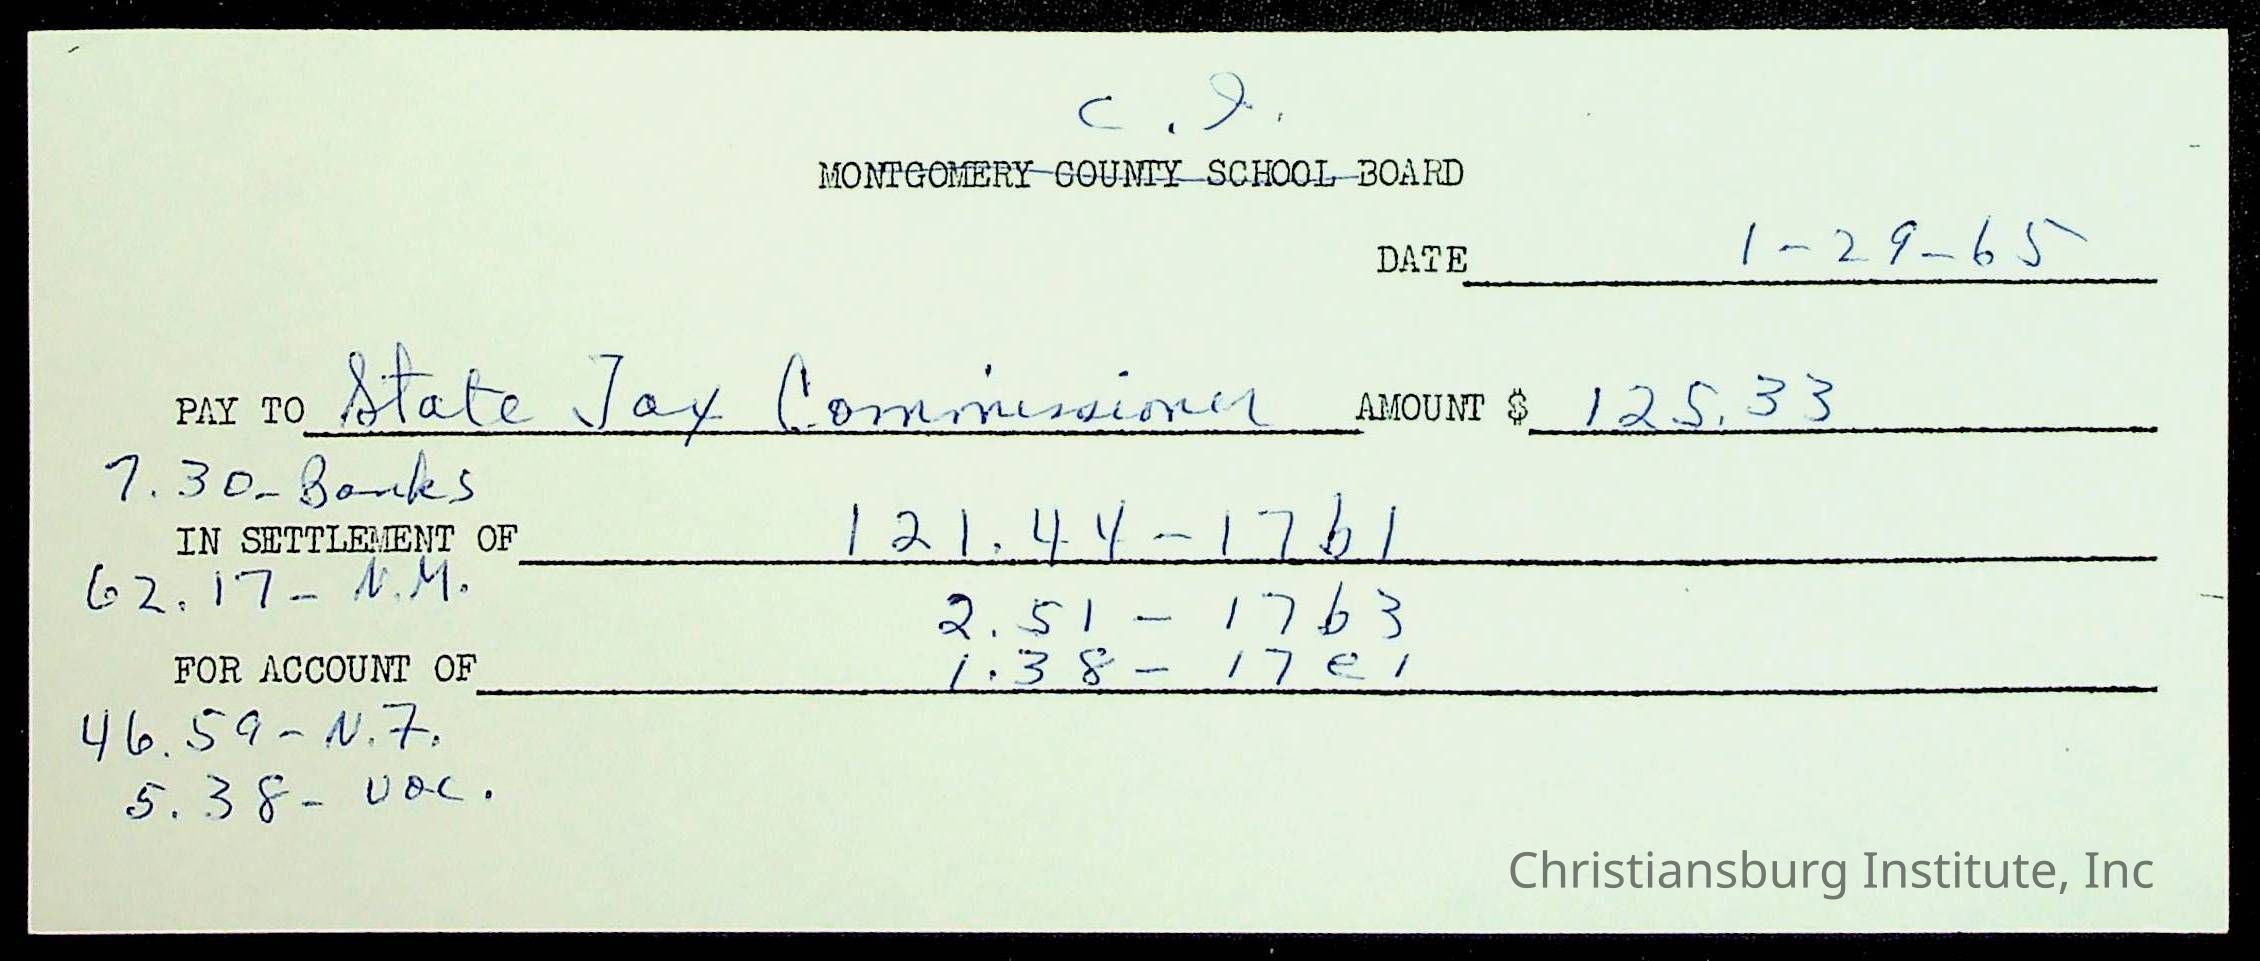 C. I.
MONTGOMERY COUNTY SCHOOL BOARD
DATE 1-29-65
PAY TO State Tax Commissioner AMOUNT $ 125.33
7.30-Banks
IN SETTLEMENT OF 121.44-17b1
62.17- N.M.
2.51- 17b3
FOR ACCOUNT OF 1.38- 17e1
46.59- N.F.
5.38- voc.
Christiansburg Institute, Inc